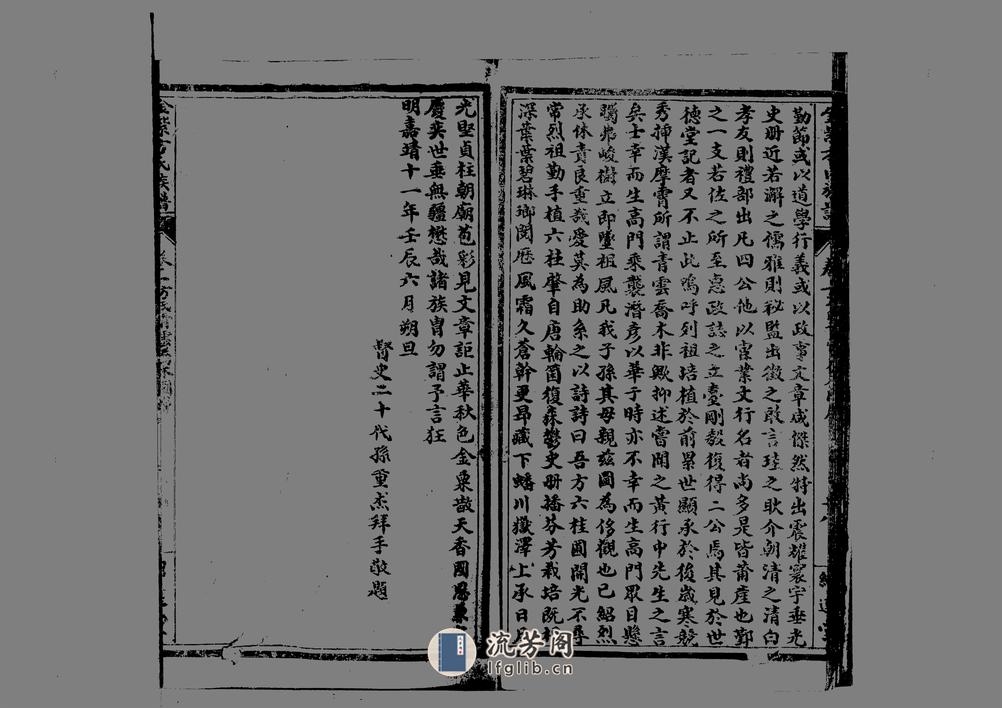 勤節或以道學行義或以政事文章咸傑然特出震耀寰宇垂光
史册近若瀚之儒雅則秘監出徵之敢言珪之耿介朝清之清白
孝友則禮部出凡四公他以宦業文行名者尚多是皆莆產也鄞
之一支若佐之所至惠政誌之立臺剛毅復得二公焉其見於世
德堂記者又不止此嗚呼列祖培植於前累世顯承於後歲寒競
秀挿漢摩霄所謂青雲喬木非歟抑述嘗聞之黃行中先生之言
矣士幸而生高門乘襲潛彥以華于時亦不幸而生高門眾目懸
矚弗峻樹立即墮祖風凡我子孫其毋觀茲圖為侈觀也已紹烈
承休責良重哉愛莫為助系之以詩詩曰吾方六桂圖開光不尋
常烈祖勤手植六桂肇自唐輪箘復森鬱史册播芬芳栽培既
深葉葉碧琳瑯閱歷風霜久蒼幹更昂藏下蟠川嶽澤上承日
光堅貞柱朝廟苞彩見文章詎止華秋色金粟散天香國恩兼
慶奕世垂無疆懋哉諸族胄勿謂予言狂
明嘉靖十一年壬辰六月朔旦
督史二十代孫重杰拜手敬題
金紫方氏族譜
卷一
流芳阁
lfglib.cn